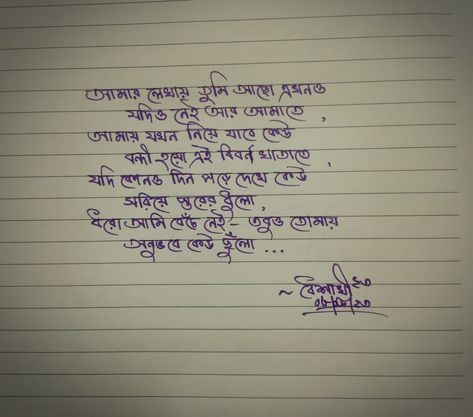 আমার লেখায় তুমি আছো এখনও
যদিও নেই আর আমাতে,
আমায় যখন নিয়ে যাবে কেউ
বন্দী হয়ো এই বিবর্ন খাতাতে,
যদি কোনও দিন পড়ে দেখে কেউ
সরিয়ে স্তরের ধুলো,
ধরো আমি বেঁচে নেই - তবুও তোমায়
অনুভবে কেউ ছুঁলো ...
~ বৈশাখী